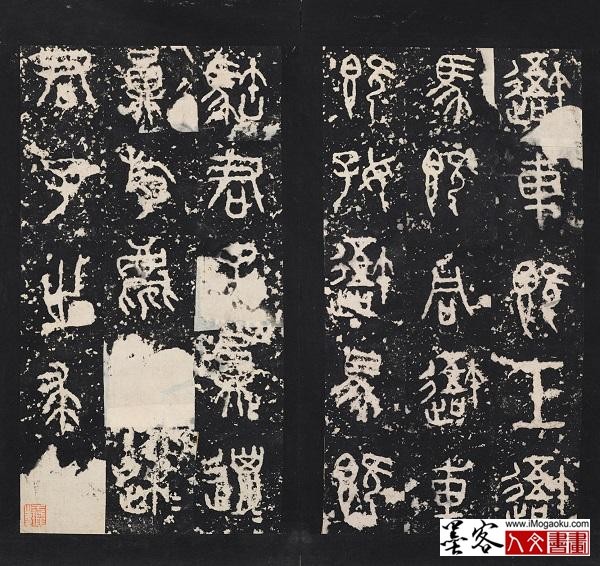 避車既工避
馬既同避車
既好避馬既
君子員邋
員斿麀速
君子之求
墨客
www.iMogaoku.com
人文書畫